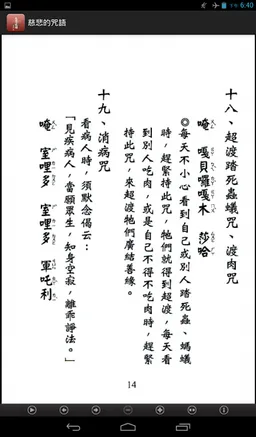 6:40
慈悲的咒語
十八、超渡踏死蟲蟻咒、渡肉咒
唵 嘎貝囉嘎木 莎哈
◎每天不小心看到自己或別人踏死蟲、螞蟻
時，趕緊持此咒，牠們就得到超渡，每天看
到別人吃肉，或是自己不得不吃肉時，趕緊
持此咒，來超渡牠們廣結善緣。
十九、消病咒
看病人時，須默念偈云：
「見疾病人，當願眾生，知身空寂，離乖諍法。」
唵 室哩多 室哩多 軍吒利
14